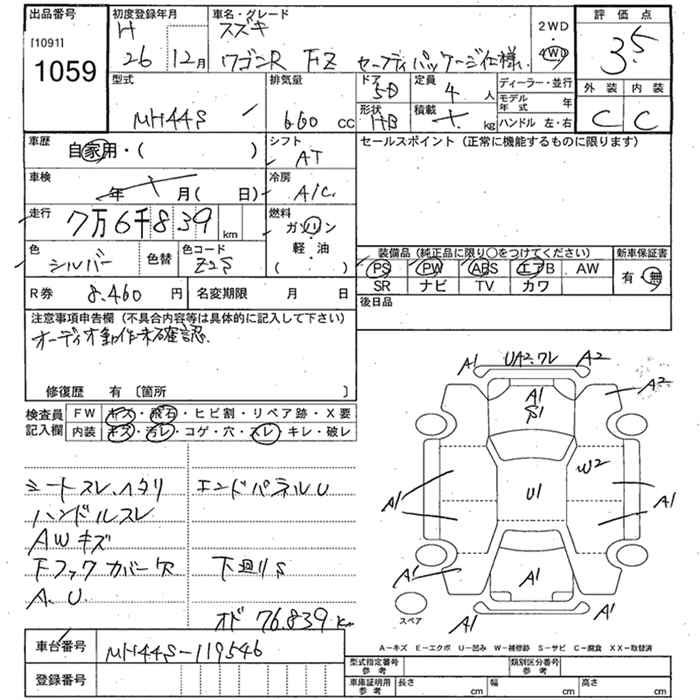 出品番号 初度登録年月 車名・グレード
[1091] H スズキ 2WD 評価点
1059 26 12月 ワゴンR FZ セーフティパッケージ仕様 4WD 3.5
型式 排気量 ドア 5D 定員 4人 ディーラー・並行 外装 内装
MH44S 660 cc 形状 HB 積載 kg モデル年式 年 C C
ハンドル 左・右
車歴 自家用・( ) シフト AT セールスポイント(正常に機能するものに限ります)
車検 年 月( 日) 冷房 A/C
走行 7万6千839 km 燃料 ガソリン
軽・油
( )
色 シルバー 色替 色コード Z2S
装備品(純正品に限り○をつけてください) 新車保証書
PS PW ABS エアB AW 有・無
SR ナビ TV カワ
R券 8.460円 名変期限 月 日 後日品
注意事項申告欄(不具合内容等は具体的に記入して下さい)
オーディオ動作未確認
修復歴 有〔箇所 〕
検査員 FW キズ・飛石・ヒビ割・リペア跡・X要
記入欄 内装 キズ・汚レ・コゲ・穴・スレ・キレ・破レ
シートスレ,ヘタリ エンドパネルU
ハンドルスレ
AWキズ
Fフックカバー欠 下廻りS
A.U.
オド 76.839km
A1 UA2.ワレ A2
A1 A2
S1
W2
A1 U1 A1
A1 A1 A1
A1 A1
スペア
車台番号 MH44S-119546
登録番号
A−キズ E−エクボ U−凹み W−補修跡 S−サビ C−腐食 XX−取替済
型式指定番号 参考 類別区分番号 参考
車庫証明用 参考 長さ cm 幅 cm 高さ cm